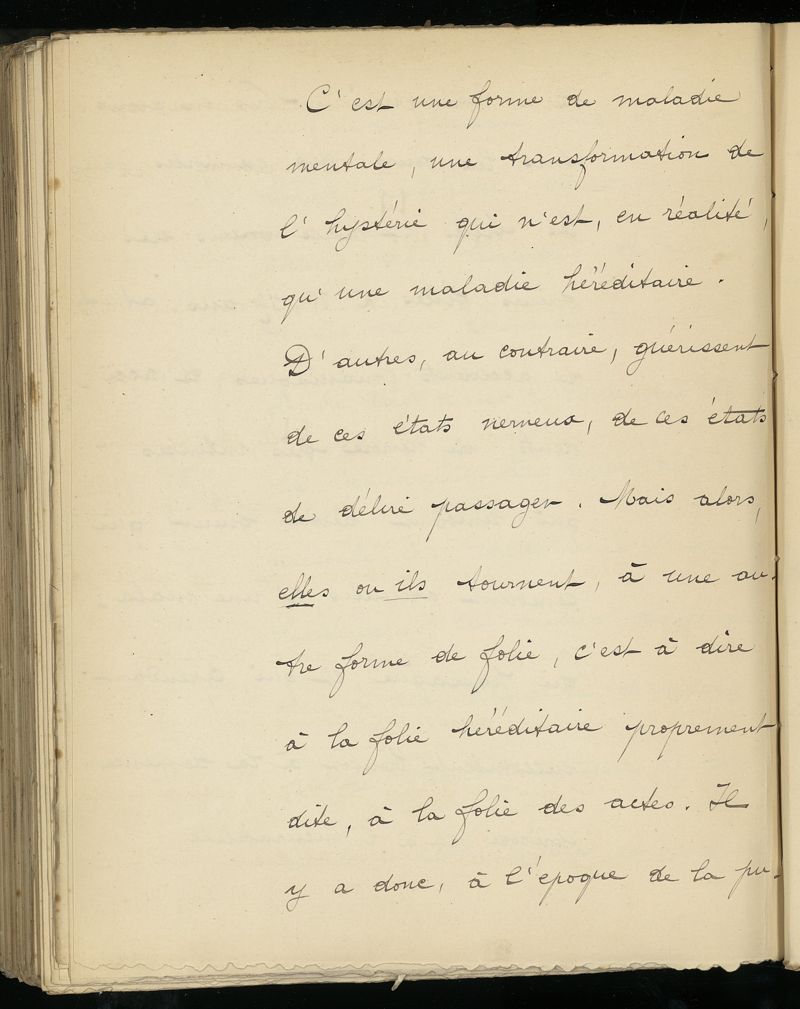 C'est une forme de maladie
mentale, une transformation de
l'hystérie qui n'est, en réalité,
qu'une maladie héréditaire.
D'autres, au contraire, guérissent
de ces états nerveux, de ces états
de délire passager. Mais alors,
elles ou ils tournent, à une au-
tre forme de folie, c'est à dire
à la folie héréditaire proprement
dite, à la folie des actes. Il
y a donc, à l'époque de la pu-